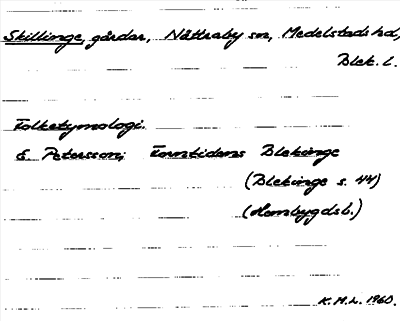 Skillinge, gårdar, Nättraby sn, Medelstads hd,
Blek. l.
Folketymologi.
G. Petersson; Forntidens Blekinge
(Blekinge s. 44)
(Hembygdsb.)
K.M.L. 1960.